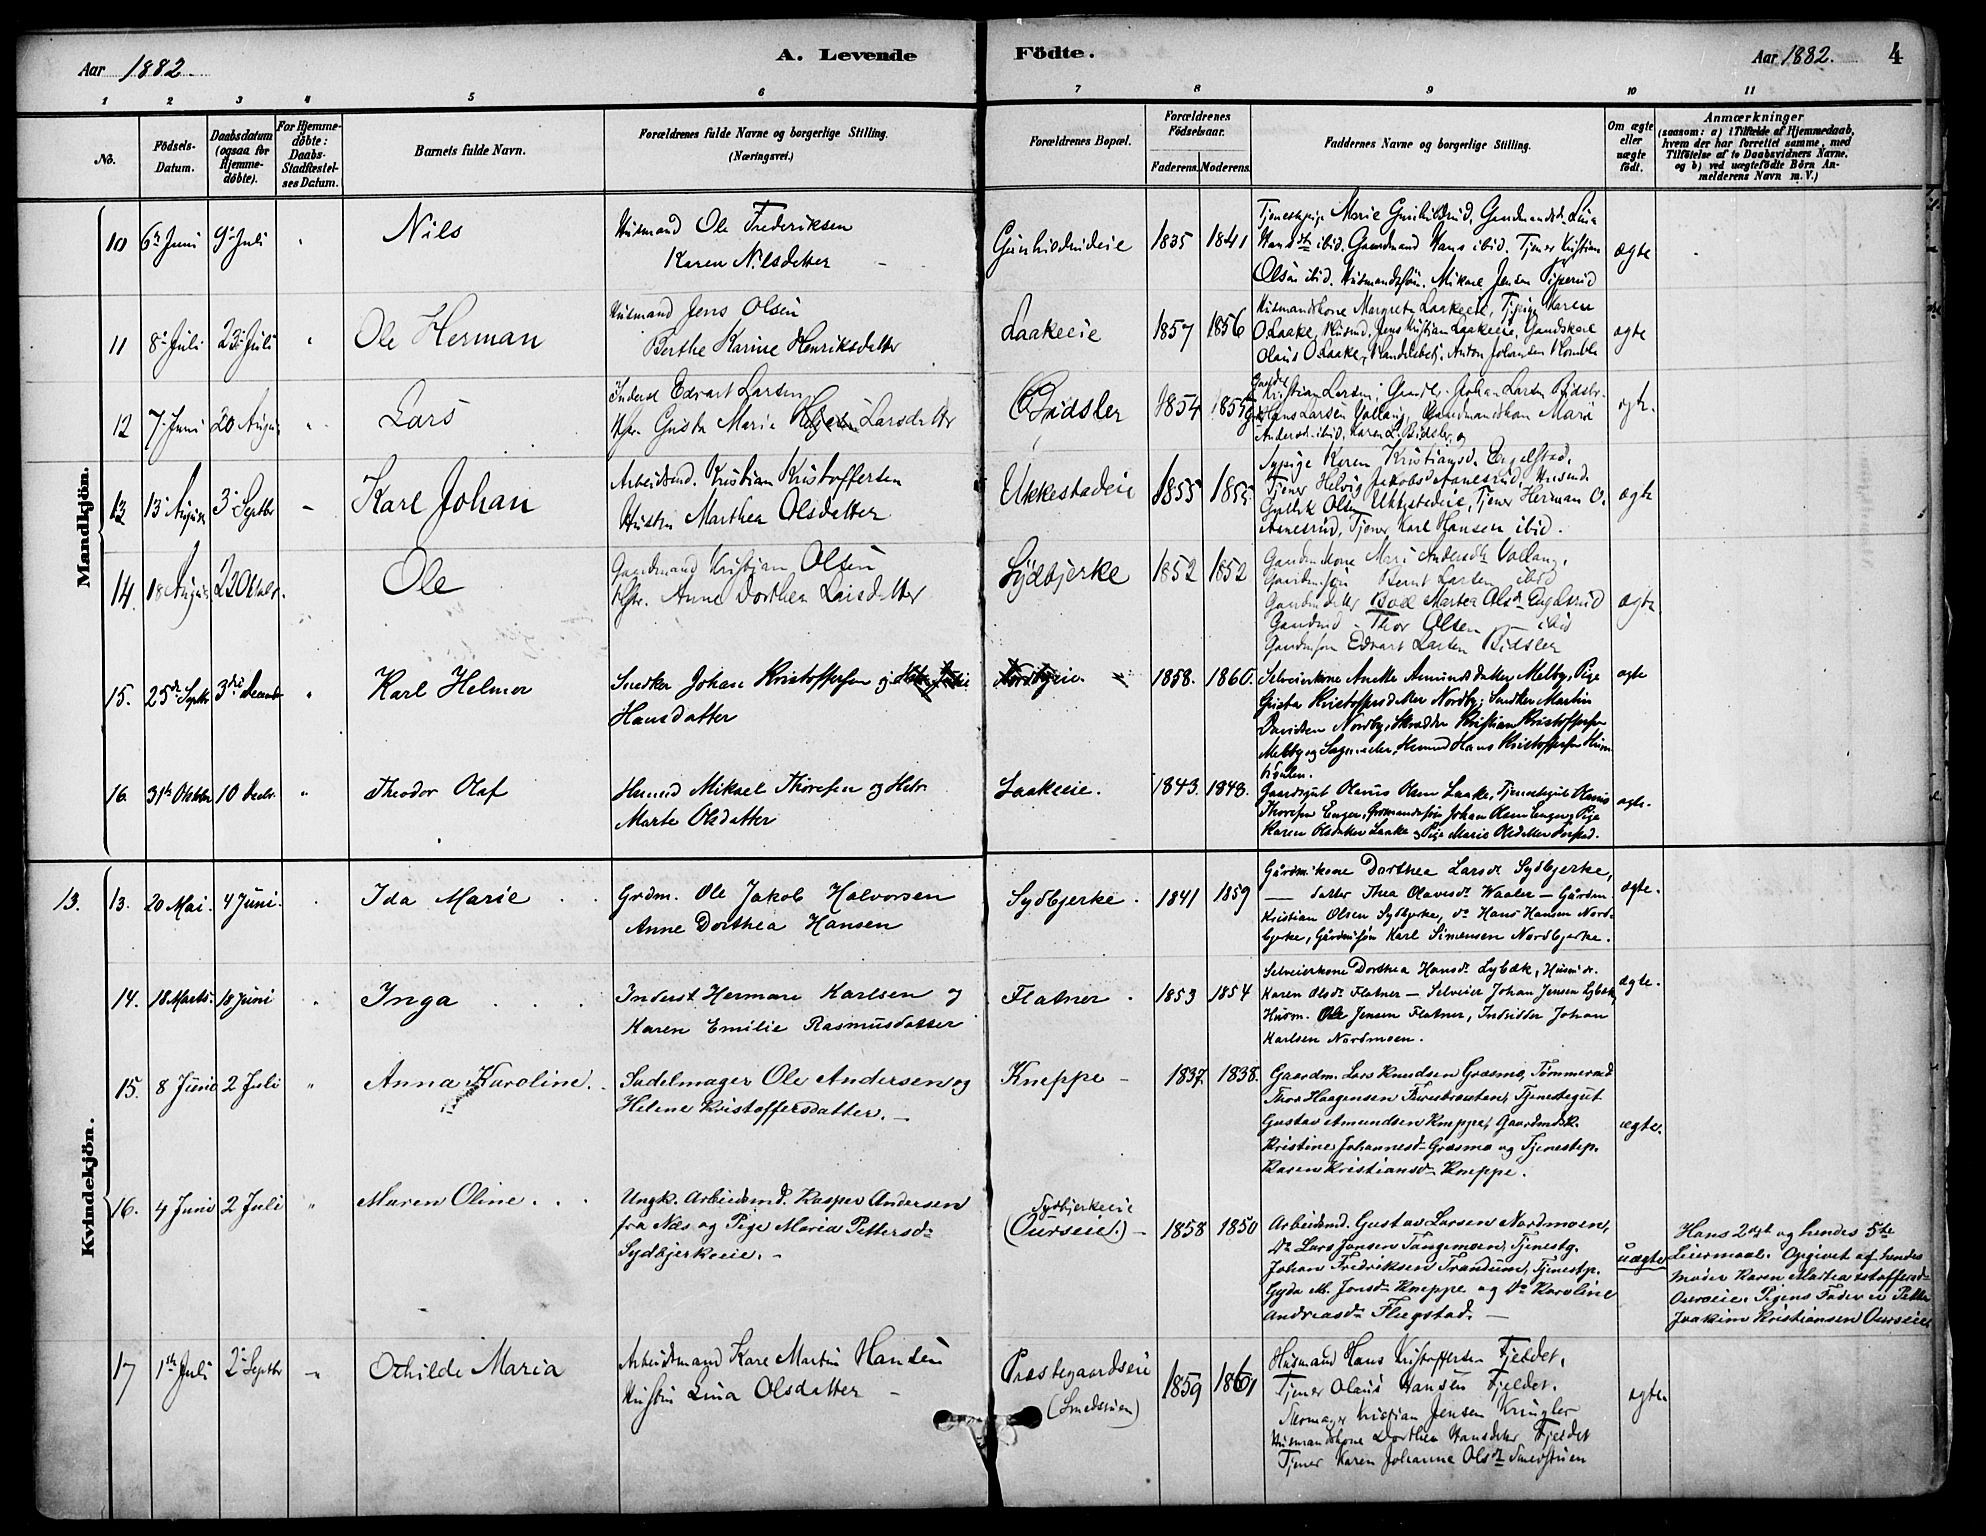 Aar 1882.
A. Levende
Födte.
Aar 1882.
4
1
2
3
4
5
6
7
8
9
10
11
No.
Födsels-
Datum.
Daabsdatum
(ogsaa for
Hjemme-
döbte).
For Hjemme-
döbte:
Daabs-
Stadfæstel-
ses Datum.
Barnets fulde Navn.
Forældrenes fulde Navne og borgerlige Stilling.
(Næringsvei.)
Forældrenes Bopæl.
Forældrenes
Födselsaar.
Faderens.
Moderens.
Faddernes Navne og borgerlige Stilling.
Om ægte
eller
uægte
födt.
Anmærkninger
(saasom: a) i Tilfælde af Hjemmedaab,
hvem der har forrettet samme, med
Tilföielse af to Daabsvidners Navne.
og b) ved uægtefödte Börn An-
melderens Navn m. V.)
Mandkjön.
10 6te Juni 9de Juli
Nils
Husmand Ole Frederiksen
Karen Nilsdetter
1835 1841
Hansdtr ibid. Gaardmand Hans ibid. Tjener Kristian
Olsen ibid. Mikael Jensen
ægte
11 8 Juli 23 Juli
Ole Herman
Husmand Jens Olsen
Berthe Karine Henriksdatter
Laakeeie
1857 1856
Husmandskone Margrete Laakeeie, Karen
O Laake, Jens Kristian Laakeeie,
Olaus O Laake, Anton Johansen
ægte
12 7 Juni 20 August
Lars
Inderst Edvart Larsen
Maria Larsdatter
Bidsler
1854 1855
Kristian Larsen, Johan Larsen Bidsler
Hans Larsen Vollaug, Gaardmandskone Mari
Andersd. ibid. Karen L. Bidsler
ægte
13 13 August 3 Septbr
Karl Johan
Arbeidsmd. Kristian Kristoffersen
Hustru Marthea Olsdatter
Ukkestadeie
1855 1855
Sypige Karen Kristiansd. Engelstad,
Tjener Helvig Jakobsd. Aanesrud,
Olsen Ukkestadeie, Tjener Herman O.
Aanesrud, Tjener Karl Hansen ibid.
ægte
14. 18 August 22 Oktobr.
Ole
Gaardmand Kristian Olsen
Anne Dorthea Larsdatter
Sydbjerke
1852 1852
Gaardmkone Mari Andersdtr Vollaug,
Gaardmsön Bernt Larsen ibid
Martea Olsdr
Thor Olsen ibid
Gaardmsön Edvart Larsen Bidsler
ægte
15. 25de Septbr 3die Decembr
Karl Helmer
Snedker Johan Kristoffersen og
Hansdatter
Nordbyeie.
1858. 1860.
Selveierkone Anette Amundsdatter Melby, Pige
Gusta Kristoffersdatter Nordby, Snedker Martin
Davidsen Nordby, Skrædder Kristian Kristoffersen
Melby og Hans Kristoffersen
ægte
16. 31te Oktober 10 Decbr.
Theodor Olaf
Husmd Mikael Thoresen og Hstr.
Marte Olsdatter
Laakeeie.
1843. 1848.
Gaardgut Olaus Olsen Laake, Tjenestegut Hans
Thoresen Engen, Johan Olsen Engen, Pige
Karen Olsdatter Laake og Pige Marie Olsdatter
ægte.
Kvindekjön.
13. 13. 20 Mai. 4 Juni.
Ida Marie
Grdm. Ole Jakob Halvorsen
Anne Dorthea Hansen
Sydbjerke.
1841 1859
Gårdm.kone Dorthea Larsdr Sydbjerke,
— datter Thea Olavesdr Waaler — Gårdm.
Kristian Olsen Sydbjerke, do Hans Hansen Nord-
bjerke, Gårdmsön Karl Simensen Nordbjerke.
ægte.
14. 18 Marts. 18 Juni
Inga
Inderst Herman Karlsen og
Karen Emilie Rasmusdatter
Flatner.
1853 1854
Selveierkone Dorthea Hansdr Lybæk, Husm. dr.
Karen Olsdr Flatner — Selveier Johan Jensen Lybæk,
Husm. Ole Jensen Flatner, Johan
Karlsen Nordmoen.
ægte.
15. 8 Junio 2 Juli
Anna Karoline.
Sadelmager Ole Andersen og
Helene Kristoffersdatter.
Kneppe
1837. 1838.
Gaardm. Lars Knudsen Græsmo, Tömmermd
Thor Haagensen Tjenestegut
Gustav Amundsen Kneppe, Gaardmdsk.
Kristine Johannesdr Græsmo og Tjenestep.
Karen Kristiansdr Kneppe.
ægte.
16. 4 Juni 2 Juli
Maren Oline.
Ungk. Arbeidsmd. Kasper Andersen
fra Næs og Pige Maria Pettersdr
Sydbjerkeeie.
Sydbjerkeeie
(Ourseie.)
1858 1850
Arbeidsmd. Gustav Larsen Nordmoen,
do Lars Jonsen Tangemoen, Tjenestg.
Johan Fredriksen Trandum, Tjenestp.
Gyda M. Jonsdr Kneppe og do Karoline
Andreasdr Flugstad.
uægte
Hans 2det og hendes 5te
Leiermaal. Opgivet af hendes
moder Karen Martea
Ourseie. Pigens Fader er Petter
Joakim Kristiansen Ourseie
17 1ste Juli 2 Septbr
Othilde Maria
Arbeidsmand Karl Martin Hansen
Hustru Lina Olsdatter
Præstegaardseie
(Smedstuen)
1859 1861
Husmand Hans Kristoffersen Fjeldet,
Tjener Olaus Hansen Fjeldet.
Kristian Jensen Kringler
Husmandskone Dorthea Hansdatter Fjeldet
Tjener Karen Johanne Olsdr Smedstuen
ægte